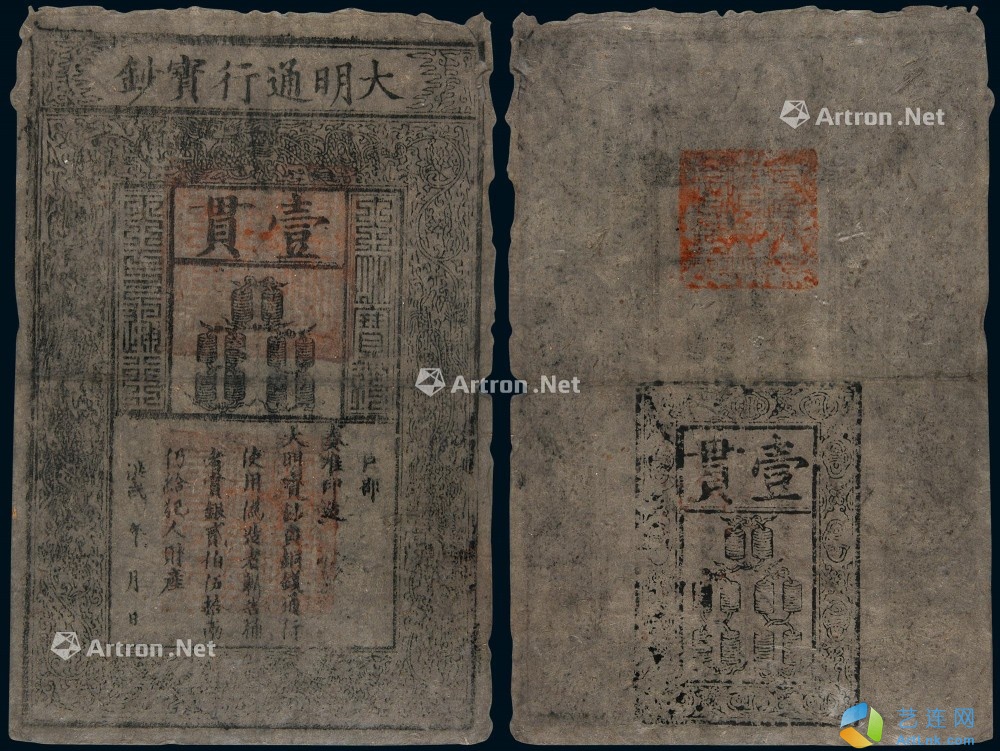 大明通行寶鈔
壹貫
大明寶鈔
天下通行
戶部
奏准印造
大明寶鈔與銅錢通行
使用偽造者斬告捕
者賞銀貳伯伍拾兩
仍給犯人財產
洪武 年 月 日
Artron.Net
Artron.Net
Artron.Net
壹貫
艺连网